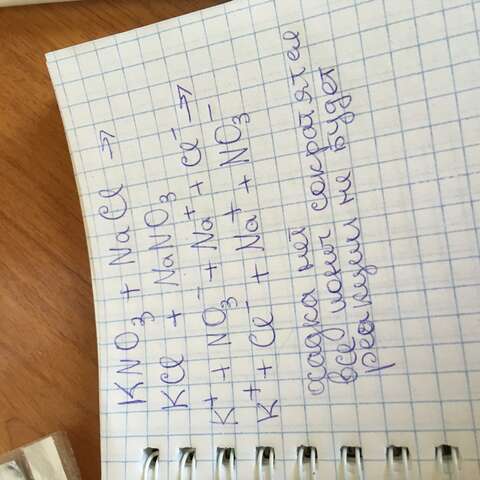 KNO₃ + NaCl →
KCl + NaNO₃
K⁺ + NO₃⁻ + Na⁺ + Cl⁻ →
K⁺ + Cl⁻ + Na⁺ + NO₃⁻
осадка нет
все ионы сократятся
реакции не будет